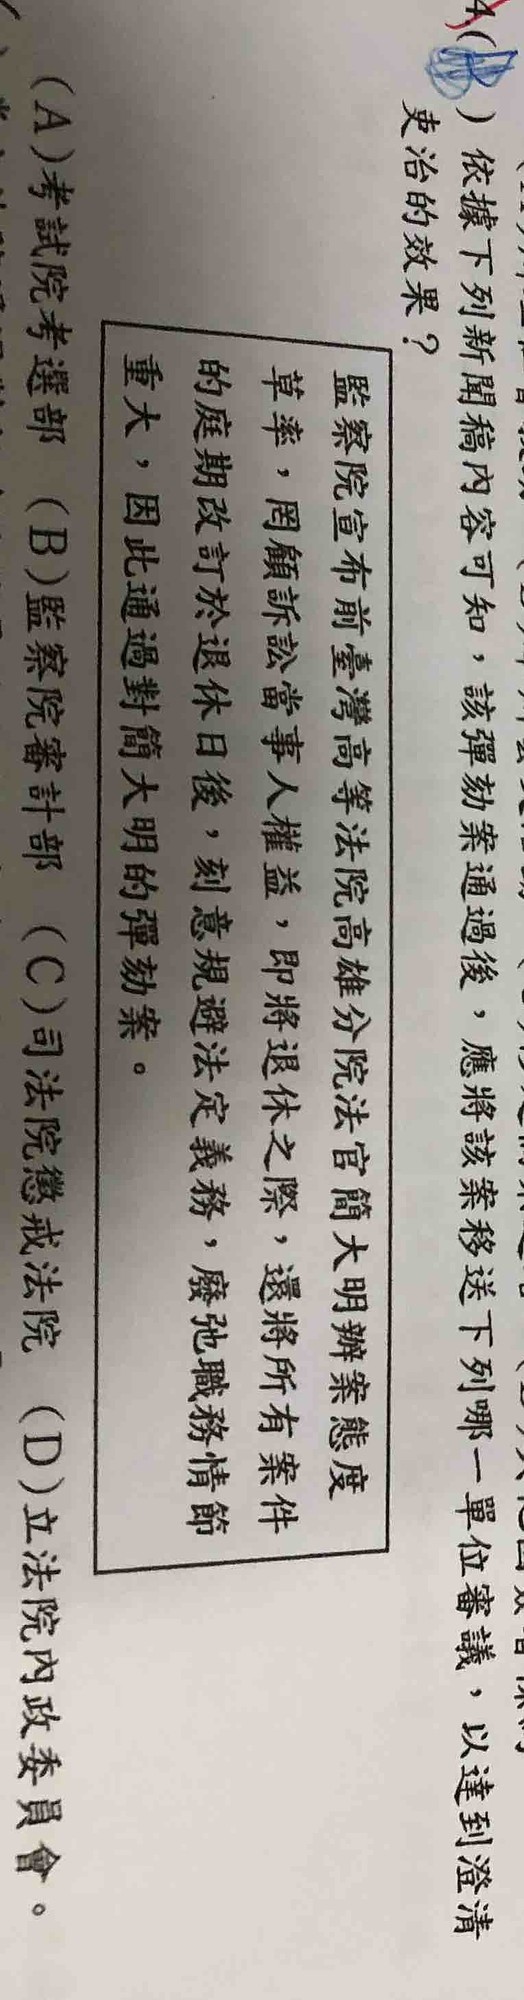 4.( ) 依據下列新聞稿內容可知，該彈劾案通過後，應將該案移送下列哪一單位審議，以達到澄清
吏治的效果？
監察院宣布前臺灣高等法院高雄分院法官簡大明辦案態度
草率，罔顧訴訟當事人權益，即將退休之際，還將所有案件
的庭期改訂於退休日後，刻意規避法定義務，廢弛職務情節
重大，因此通過對簡大明的彈劾案。
(A)考試院考選部 (B)監察院審計部 (C)司法院懲戒法院 (D)立法院內政委員會。